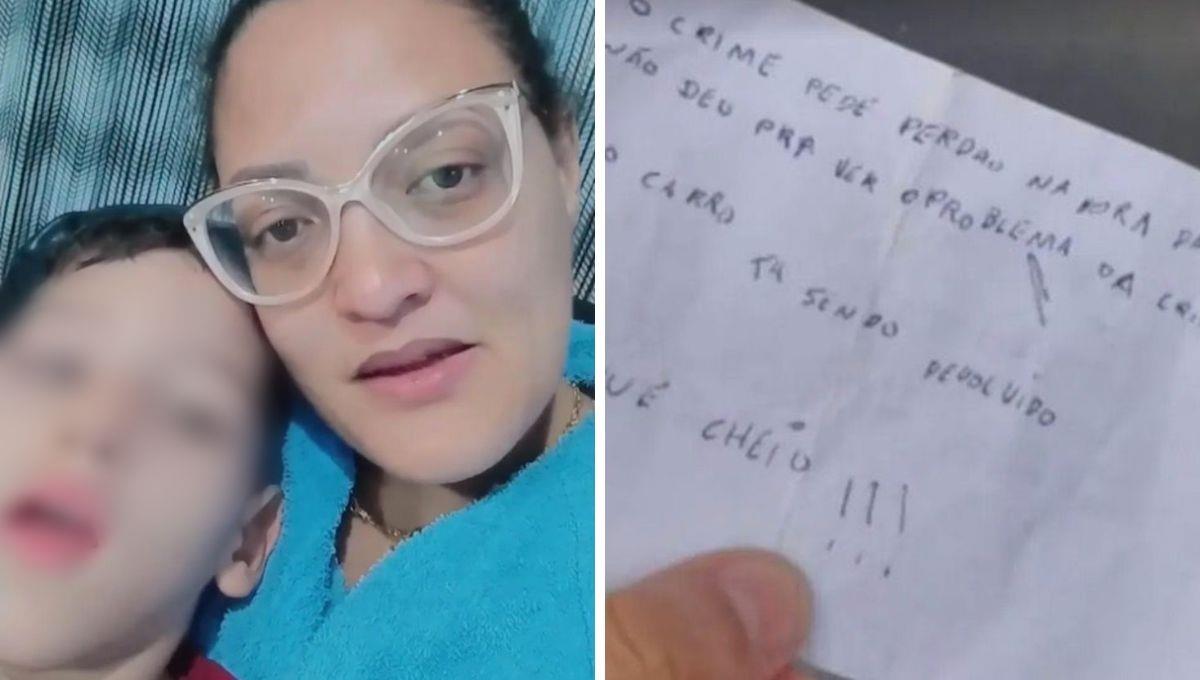 O CRIME PEDE PERDÃO NA HORA DA
NÃO DEU PRA VER O PROBLEMA DA CRI
O CARRO TÁ SENDO DEVOLVIDO
UÉ CHEIO !!!